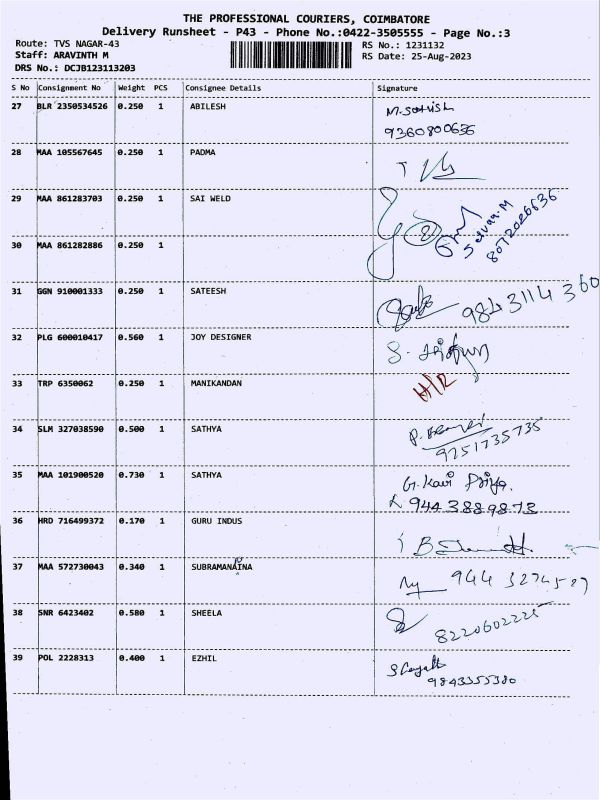 THE PROFESSIONAL COURIERS, COIMBATORE
Delivery Runsheet - P43 - Phone No.:0422-3505555 - Page No.:3
Route: TVS NAGAR-43 RS No.: 1231132
Staff: ARAVINTH M RS Date: 25-Aug-2023
DRS No.: DCJB123113203
S No Consignment No Weight PCS Consignee Details Signature
27 BLR 2350534526 0.250 1 ABILESH M.Sathish
9360800636
28 MAA 105567645 0.250 1 PADMA
29 MAA 861283703 0.250 1 SAI WELD
Selvaa.M
8072026636
30 MAA 861282886 0.250 1
31 GGN 910001333 0.250 1 SATEESH 9843114360
32 PLG 600010417 0.560 1 JOY DESIGNER
33 TRP 6350062 0.250 1 MANIKANDAN H/R
34 SLM 327038590 0.500 1 SATHYA
9751735735
35 MAA 101900520 0.730 1 SATHYA G.Kavi Priya.
9443889873
36 HRD 716499372 0.170 1 GURU INDUS
37 MAA 572730043 0.340 1 SUBRAMANAINA
38 SNR 6423402 0.580 1 SHEELA
8220602225
39 POL 2228313 0.400 1 EZHIL
9843355380